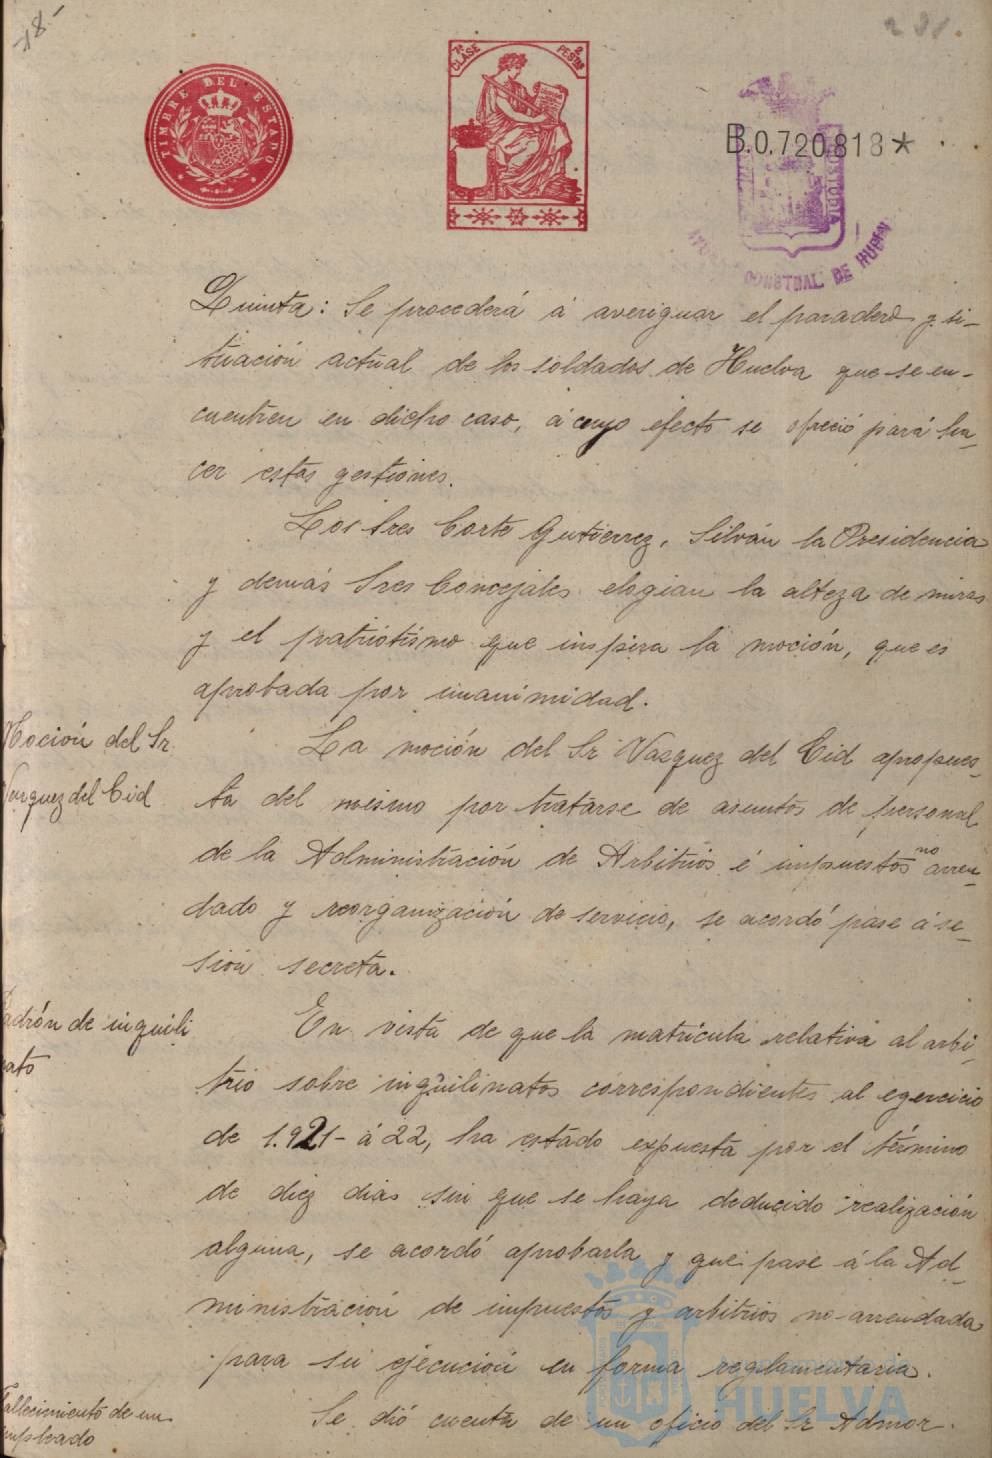 18.-
291.
TIMBRE DEL ESTADO
7ª CLASE
2 PESTAS
B.0.720.818*
CONSTNAL. DE HUELVA
Quinta: Se procederá á averiguar el paradero y si-
tuación actual de los soldados de Huelva que se en-
cuentren en dicho caso, á cuyo efecto se ofreció para ha-
cer estas gestiones.
Los Sres Corte Gutierrez, Silván la Presidencia
y demás Sres Concejales elogian la alteza de miras
y el patriotismo que inspira la moción, que es
aprobada por unanimidad.
Moción del Sr.
Vazquez del Cid
La moción del Sr Vazquez del Cid apropues-
ta del mismo por tratarse de asuntos de personal
de la Administración de Arbitrios é impuestos no arren-
dado y reorganización de servicio, se acordó pase á se-
sión secreta.
Padrón de inquili
nato
En vista de que la matrícula relativa al arbi-
trio sobre inquilinatos correspondientes al egercicio
de 1.921- á 22, ha estado expuesta por el término
de diez dias sin que se haya deducido realización
alguna, se acordó aprobarla y que pase á la Ad-
ministración de impuestos y arbitrios no-arrendada
para su ejecución en forma reglamentaria.
Fallecimiento de un
empleado
Se dió cuenta de un oficio del Sr Admor.
Ayuntamiento de
HUELVA